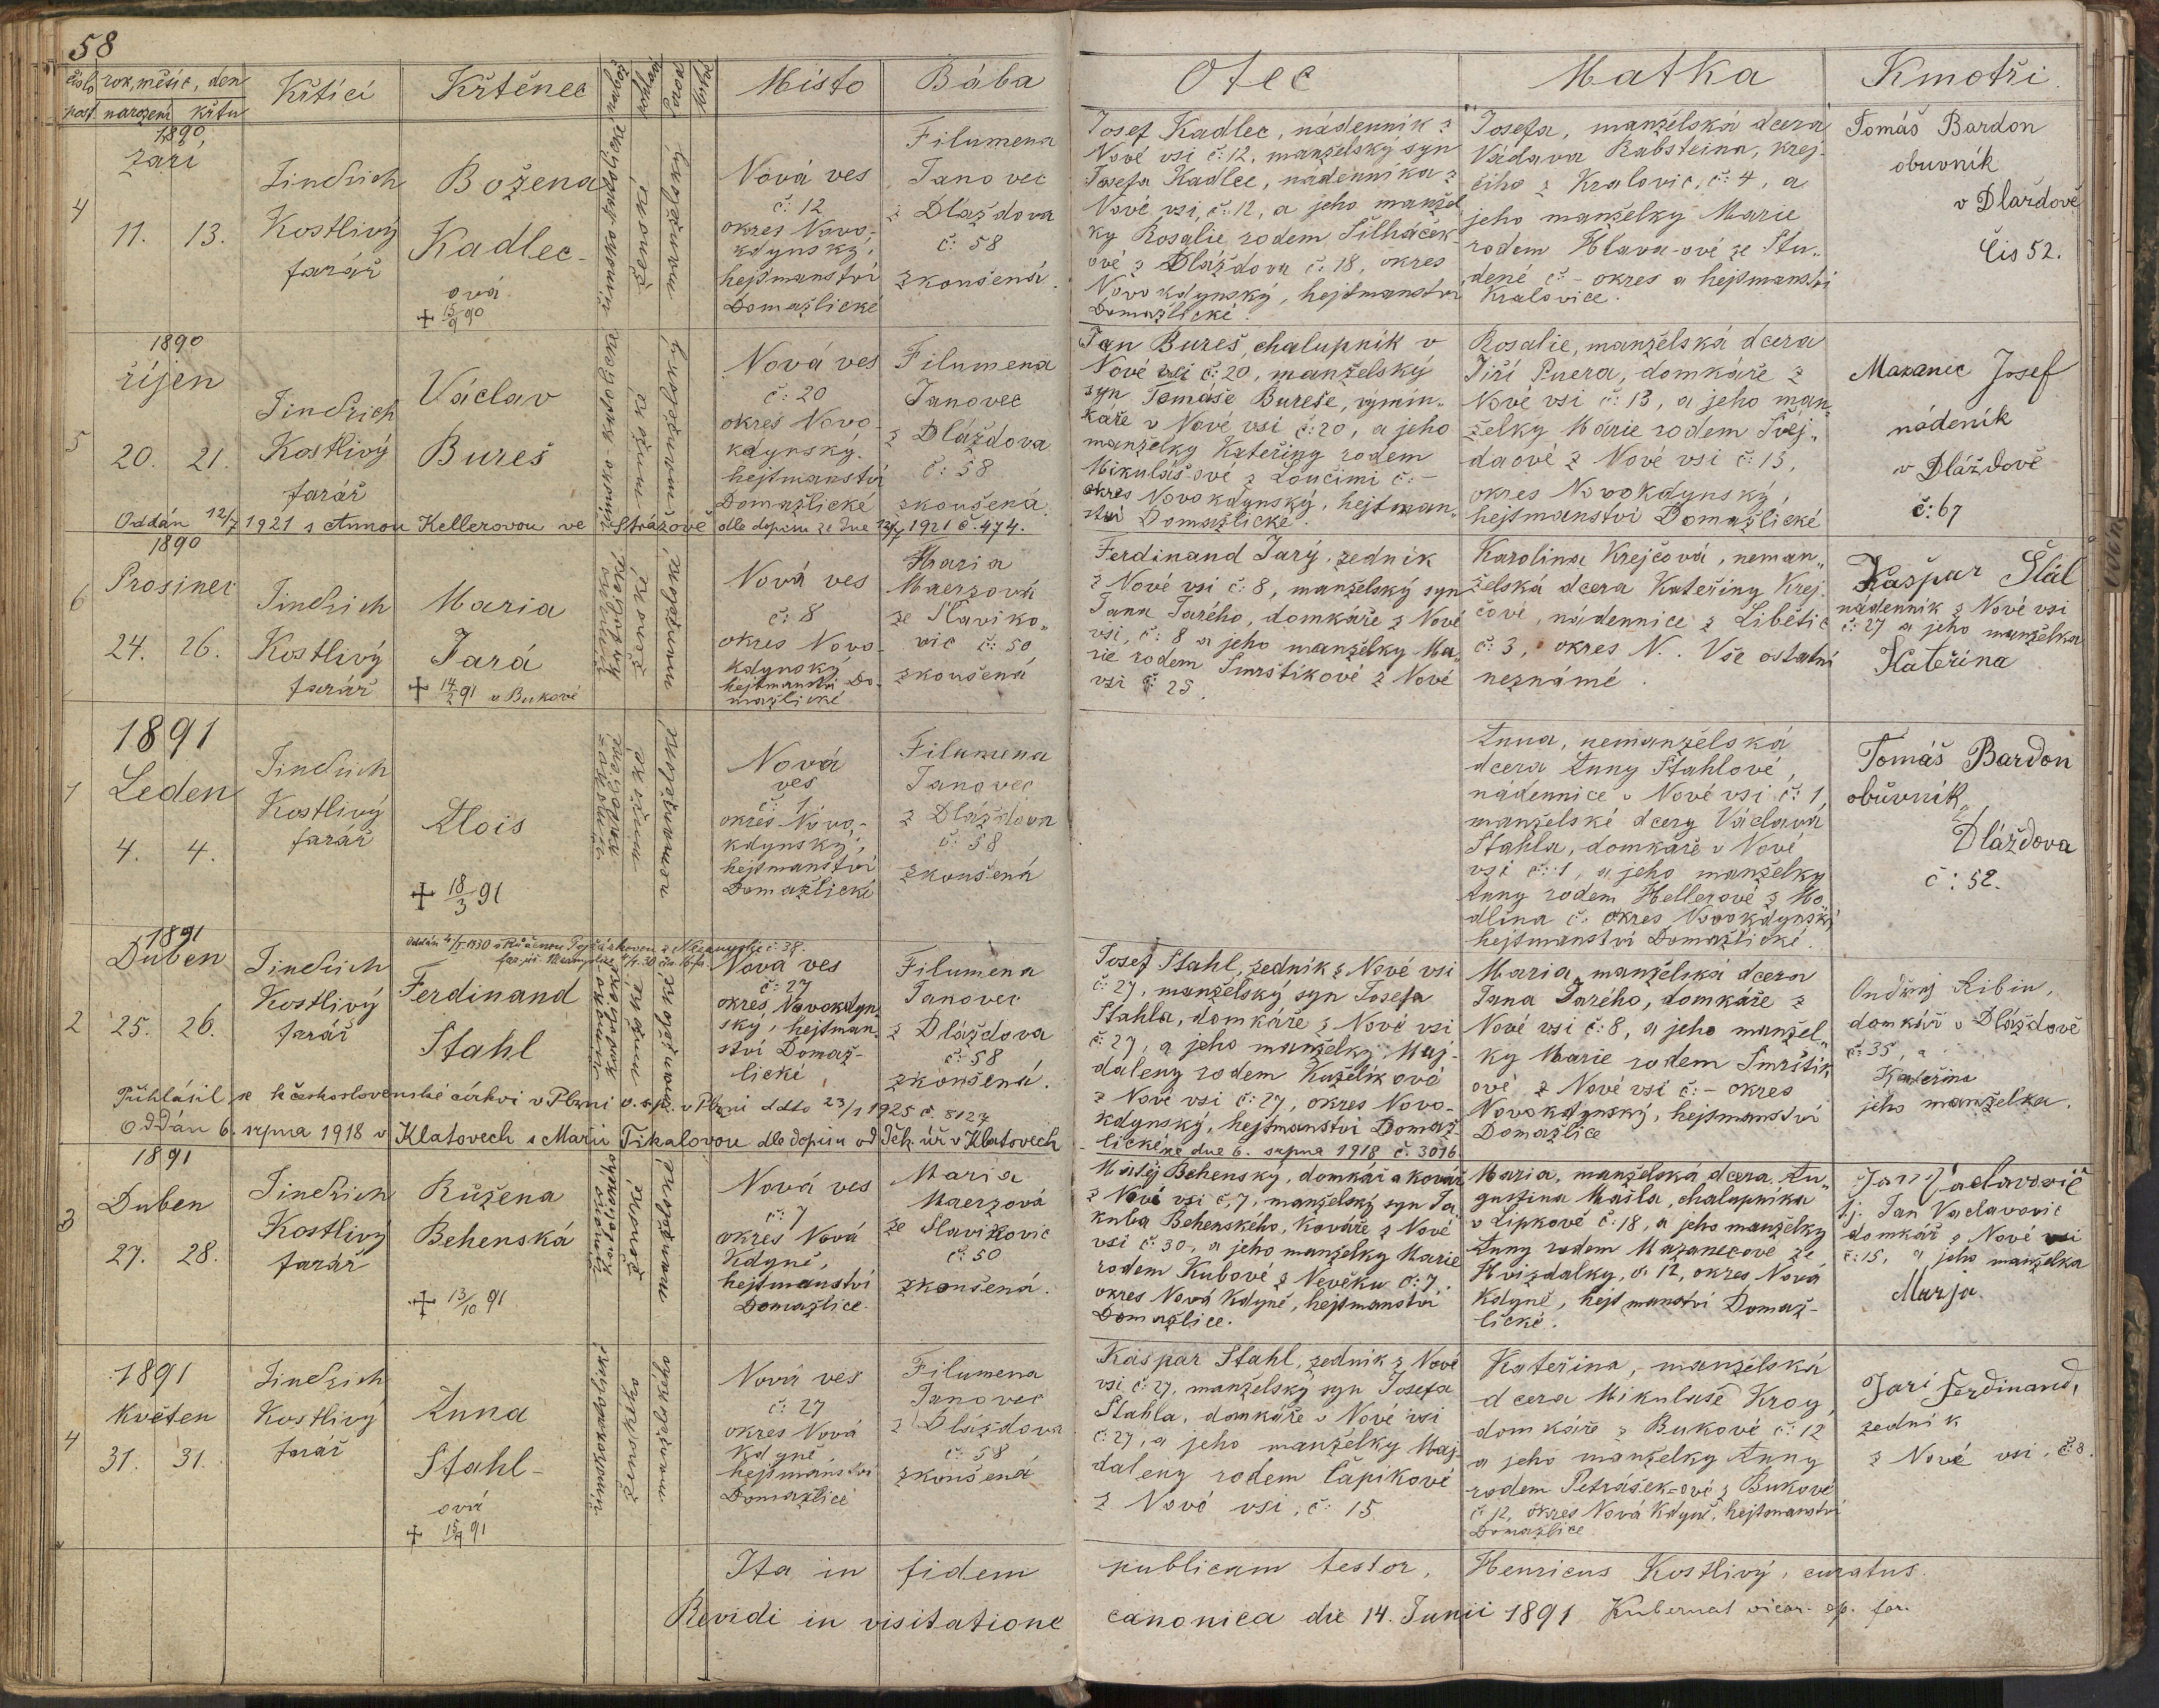 58
číslo rok, měsíc, den
post. narození křtu
Křtící
Křtěnec
nábož.
pohlaví
Místo
Bába
Otec
Matka
Kmotři
1890
září
4
11. 13.
Jindřich
Kostlivý
farář
Božena
Kadlec-
ová
+ 15/9 90
římskokatolické
ženské
manželský
Nová ves
č: 12
okres Novo-
kdynský,
hejtmanství
Domažlické
Filumena
Janovec
z Dlaždova
č: 58
zkoušená.
Josef Kadlec, nádenník z
Nové vsi č: 12, manželský syn
Josefa Kadlec, nádenníka z
Nové vsi, č: 12, a jeho manžel
ky Rosalie rodem Silháček-
ové z Dlážďova č: 18, okres
Novokdynský, hejtmanství
Domažlické.
Josefa, manželská dcera
Václava Rabsteina, krej-
čího z Kralovic, č: 4, a
jeho manželky Marie
rodem Hlava-ové ze Stu-
dené č: - okres a hejtmanství
Kralovice.
Tomáš Bardon
obuvník
v Dlaždově
Čis 52.
1890
říjen
5
20. 21.
Jindřich
Kostlivý
farář
Václav
Bureš
mužské
manželský
Nová ves
č: 20
okres Novo-
kdynský.
hejtmanství
Domažlické
Filumena
Janovec
z Dláždova
č: 58
zkoušená.
Jan Bureš, chalupník v
Nové vsi č: 20, manželský
syn Tomáše Bureše, výmin-
káře v Nové vsi č: 20, a jeho
manželky Kateřiny rodem
Mikuláš-ové z Loučimi č: -
okres Novokdynský, hejtman-
ství Domažlické.
Rosalie, manželská dcera
Jiří Puera, domkáře z
Nové vsi č: 13, a jeho man-
želky Marie rodem Švej-
daové z Nové vsi č: 13,
okres Novokdynský,
hejtmanství Domažlické
Mazanec Josef
nádeník
v Dláždově
č: 67
Oddán 12/7 1921 s Annou Kellerovou ve Strážově dle dopisu ze dne 12/7 1921 č. 474.
1890
Prosinec
6
24. 26.
Jindřich
Kostlivý
farář
Maria
Jará
+ 14/2 91 v Bukové
katolické
ženské
manželské
Nová ves
č: 8
okres Novo-
kdynský
hejtmanství Do-
mažlické
Maria
Maerzová
ze Slaviko-
vic č: 50
zkoušená
Ferdinand Jarý, zedník
z Nové vsi č: 8, manželský syn
Jana Jarého, domkáře z Nové
vsi, č: 8 a jeho manželky Ma-
rie rodem Smrstíkové z Nové
vsi č: 25.
Karolina Krejčová, neman-
želská dcera Kateřiny Krej-
čové, nádennice z Libětic
č: 3, okres N. Vše ostatní
neznámé.
Kašpar Štál
nádenník z Nové vsi
č: 27 a jeho manželka
Kateřina
1891
Leden
1
4. 4.
Jindřich
Kostlivý
farář
Alois
+ 18/3 91
mužské
nemanželské
Nová
ves
č: 1
okres Novo-
kdynský,
hejtmanství
Domažlické
Filumena
Janovec
z Dláždova
č: 58
zkoušená
Anna, nemanželská
dcera Anny Stahlové,
nádennice v Nové vsi č: 1,
manželské dcery Václava
Stahla, domkáře v Nové
vsi č: 1, a jeho manželky
Anny rodem Hellerové z Mo
dlína č: okres Novokdynský
hejtmanství Domažlické.
Tomáš Bardon
obuvník z
Dláždova
č: 52.
1891
Duben
2
25. 26.
Jindřich
Kostlivý
farář
Ferdinand
Stahl
mužské
manželské
Nová ves
č: 27
okres Novokdyn-
ský, hejtman-
ství Domaž-
lické
Filumena
Janovec
z Dláždova
č: 58
zkoušená.
Josef Stahl, zedník z Nové vsi
č: 27, manželský syn Josefa
Stahla, domkáře z Nové vsi
č: 27, a jeho manželky Maj-
daleny rodem Kuželíkové
z Nové vsi č: 27, okres Novo-
kdynský, hejtmanství Domaž-
lické
Maria, manželská dcera
Jana Jarého, domkáře z
Nové vsi č: 8, a jeho manžel-
ky Marie rodem Smrštík
ové z Nové vsi č: - okres
Novokdynský, hejtmanství
Domažlice
Ondřej Ribin,
domkář v Dláždově
č: 35, a
Kateřina
jeho manželka.
Přihlásil se k československé církvi v Plzni o.s.p. v Plzni ddto 23/1 1925 č. 8127
Oddán 6. srpna 1918 v Klatovech s Marií Tikalovou dle dopisu od děk. úř. v Klatovech
ze dne 6. srpna 1918 č. 3016.
1891
Duben
3
27. 28.
Jindřich
Kostlivý
farář
Růžena
Behenská
+ 13/10 91
ženské
manželské
Nová ves
č: 7
okres Nová
Kdyně,
hejtmanství
Domažlice.
Maria
Maerzová
ze Slavikovic
č: 50
zkoušená.
Matěj Behenský, domkář a kovář
z Nové vsi č. 7, manželský syn Ja
kuba Behenského, kováře z Nové
vsi č: 30, a jeho manželky Marie
rodem Kubové z Nevěku č: 7.
okres Nová Kdyně, hejtmanství
Domažlice.
Maria, manželská dcera Au-
gustina Mašla, chalupníka
v Lipkové č: 18, a jeho manželky
Anny rodem Mazanecové ze
Hvízdalky, č. 12, okres Nová
Kdyně, hejtmanství Domaž-
lické.
Jan Václavovič
tj. Jan Václavovic
domkář z Nové vsi
č: 15, a jeho manželka
Marja.
1891
Květen
4
31. 31.
Jindřich
Kostlivý
farář
Anna
Stahl-
ová
+ 91
římskokatolické
ženské
manželské
Nová ves
č: 27
okres Nová
Kdyně
hejtmánství
Domažlice
Filumena
Janovec
z Dláždova
č: 58
zkoušená
Kašpar Stahl, zedník z Nové
vsi č: 27, manželský syn Josefa
Stahla, domkáře v Nové vsi
č: 27, a jeho manželky Maj-
daleny rodem Čapíkové
z Nové vsi, č: 15
Kateřina, manželská
dcera Mikuláše Kroy,
domkáře z Bukové č: 12
a jeho manželky Anny
rodem Petrášek-ové z Bukové
č: 12, okres Nová Kdyně, hejtmanství
Domažlice
Jarí Ferdinand,
zedník
z Nové vsi, č: 8.
Ita in fidem publicam testor, Henricus Kostlivý, curatus.
Revidi in visitatione canonica die 14. Junii 1891 Kubernat vicar.